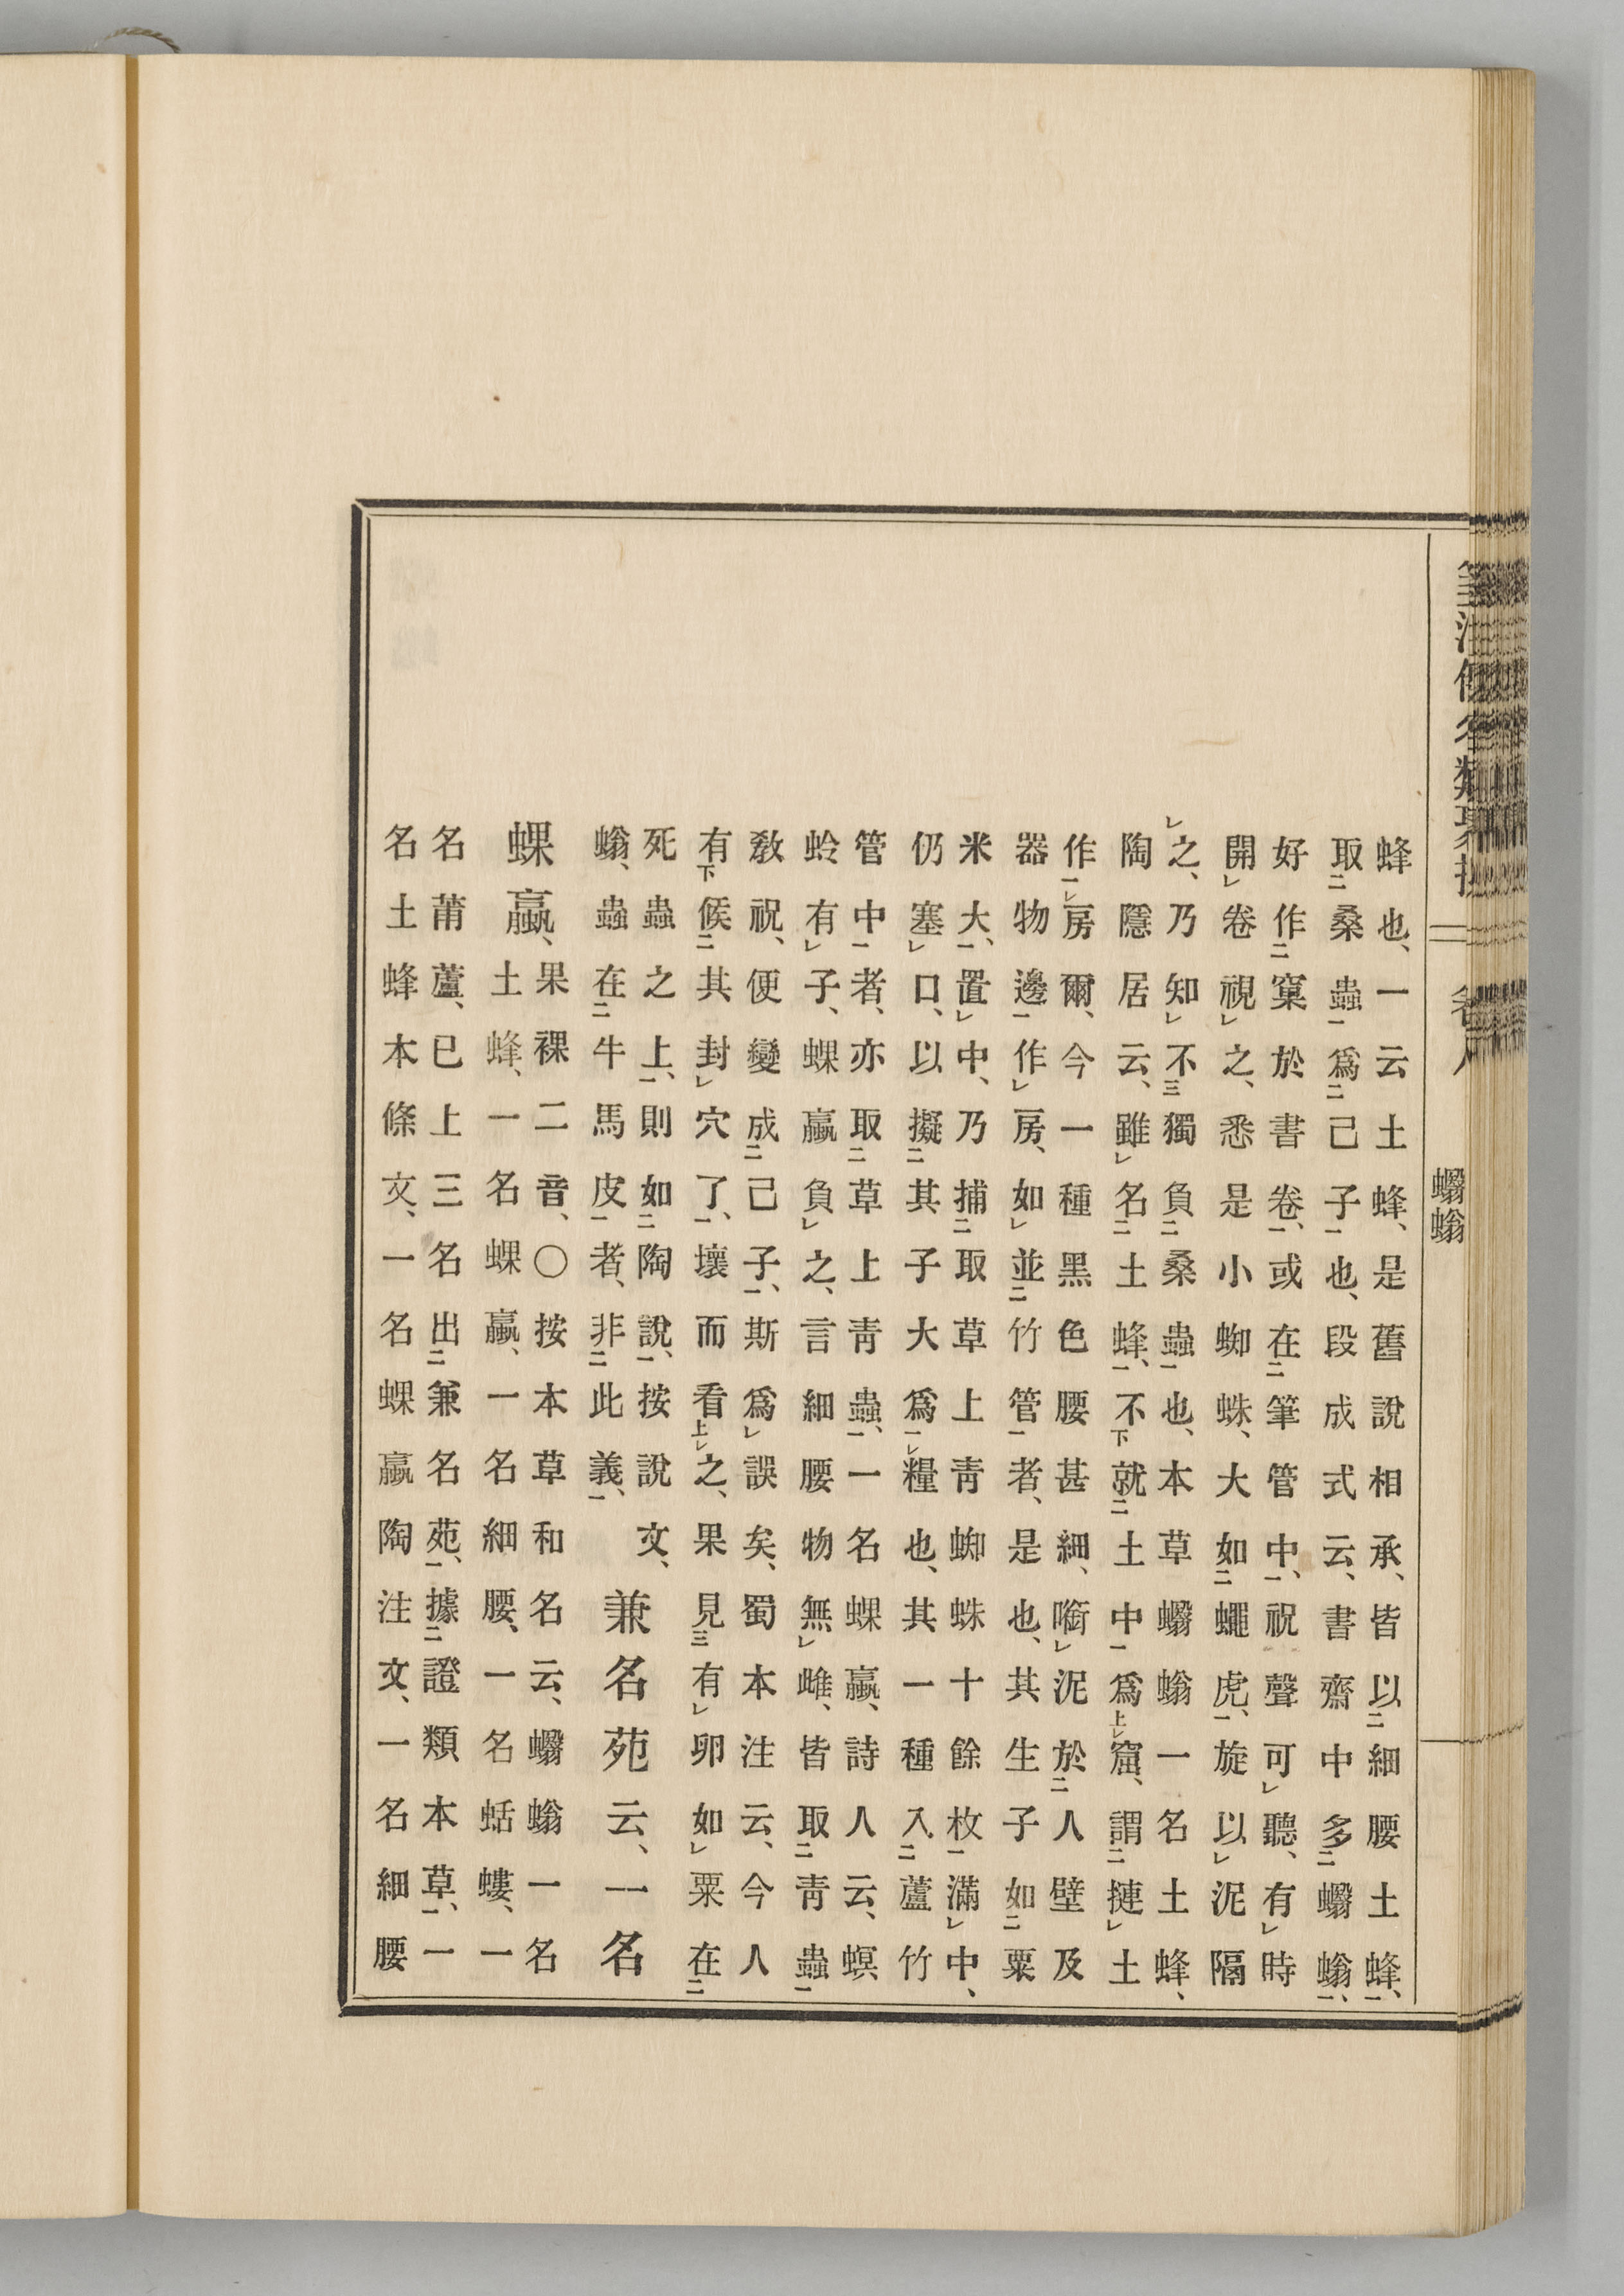 箋注倭名類聚抄 卷八 蠮螉
蜂也、一云土蜂、是舊說相承、皆以細腰土蜂、
取桑蟲爲己子也、段成式云、書齋中多蠮螉、
好作窠於書卷、或在筆管中、祝聲可聽、有時
開卷視之、悉是小蜘蛛、大如蠅虎、旋以泥隔
之、乃知不獨負桑蟲也、本草蠮螉一名土蜂、
陶隱居云、雖名土蜂、不就土中爲窟、謂摙土
作房爾、今一種黑色腰甚細、㘅泥於人壁及
器物邊作房、如並竹管者、是也、其生子如粟
米大、置中、乃捕取草上靑蜘蛛十餘枚滿中、
仍塞口、以擬其子大爲糧也、其一種入蘆竹
管中者、亦取草上靑蟲、一名蜾蠃、詩人云、螟
蛉有子、蜾蠃負之、言細腰物無雌、皆取靑蟲
敎祝、便變成己子、斯爲誤矣、蜀本注云、今人
有候其封穴了、壞而看之、果見有卵如粟在
死蟲之上、則如陶說、按說文、
螉、蟲在牛馬皮者、非此義、
兼名苑云、一名
蜾蠃、
果裸二音、〇按本草和名云、蠮螉一名
土蜂、一名蜾蠃、一名細腰、一名蛞螻、一
名莆蘆、已上三名出兼名苑、據證類本草、一
名土蜂本條文、一名蜾蠃陶注文、一名細腰